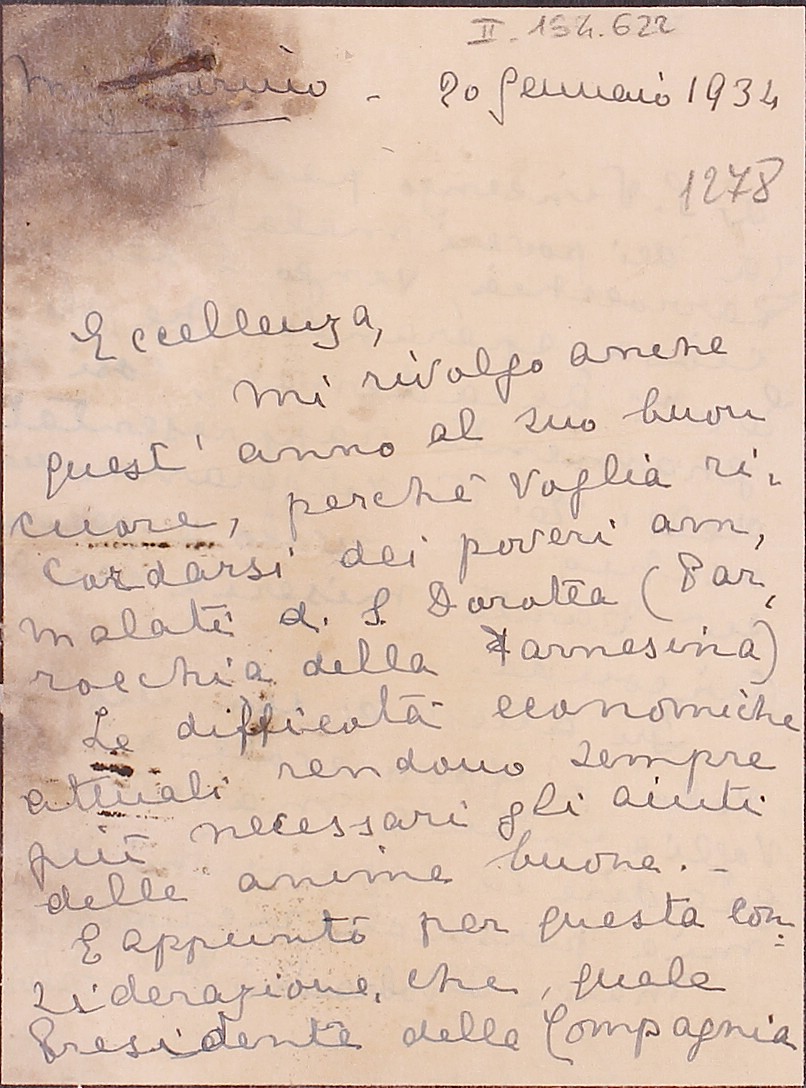 II. 154.622
20 Gennaio 1934
1278
Eccellenza,
mi rivolgo anche
quest' anno al suo buon
cuore, perchè voglia ri-
cordarsi dei poveri am,
malati di S. Dorotea (Par,
rocchia della Farnesina)
Le difficoltà economiche
attuali rendono sempre
più necessari gli aiuti
delle anime buone. -
E appunto per questa con-
siderazione, che, quale
Presidente della Compagnia